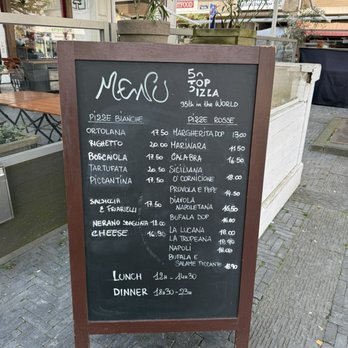 MENÙ
50
TOP
PIZZA
95th in the WORLD
PIZZE BIANCHE
ORTOLANA 17.50
RIGHETTO 20.00
BOSCAIOLA 17.50
TARTUFATA 20.50
PICCANTINA 17.50
SALSICCIA
E FRIARIELLI 17.50
NERANO SPAGLINA 18.00
CHEESE 16.50
PIZZE ROSSE
MARGHERITA DOP 13.00
MARINARA 11.50
CALABRA 16.50
SICILIANA
O' CORNICIONE 18.00
PROVOLA E PEPE 14.50
DIAVOLA
NAPOLETANA 16.50
BUFALA DOP 16.00
LA LUCANA 18.00
LA TROPEANA 18.50
NAPOLI 14.00
BUFALA E
SALAME PICCANTE 18.50
LUNCH 12H - 14H30
DINNER 18H30 - 23H